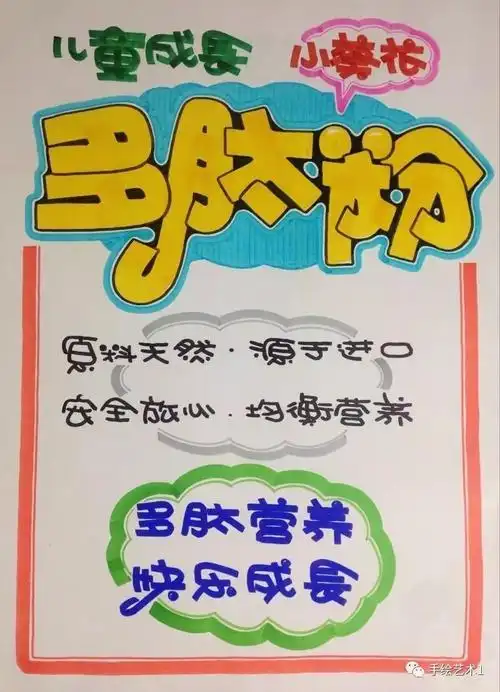 儿童成长 小葵花
多肽粉
原料天然·源于进口
安全放心·均衡营养
多肽营养
快乐成长
手绘艺术1